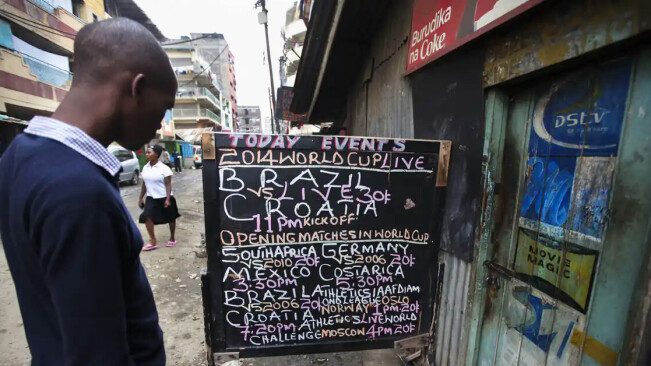 Burudika
na Coke
TODAY EVENT'S
2014 WORLD CUP LIVE
BRAZIL
VS LIVE 30/-
CROATIA
11PM KICKOFF
OPENING MATCHES IN WORLD CUP
SOUTH AFRICA GERMANY
VS 2010 20/- VS 2006 20/-
MEXICO COSTARICA
3:30PM 5:30PM
BRAZIL ATHLETICS IAAF DIAM
VS 2006 20/- OND LEAGUE OSLO
CROATIA NORWAY 1PM 20/-
7:20PM ATHLETICS LIVE WORLD
CHALLENGE MOSCOW 4PM 20/-
DSTV
MOVIE
MAGIC